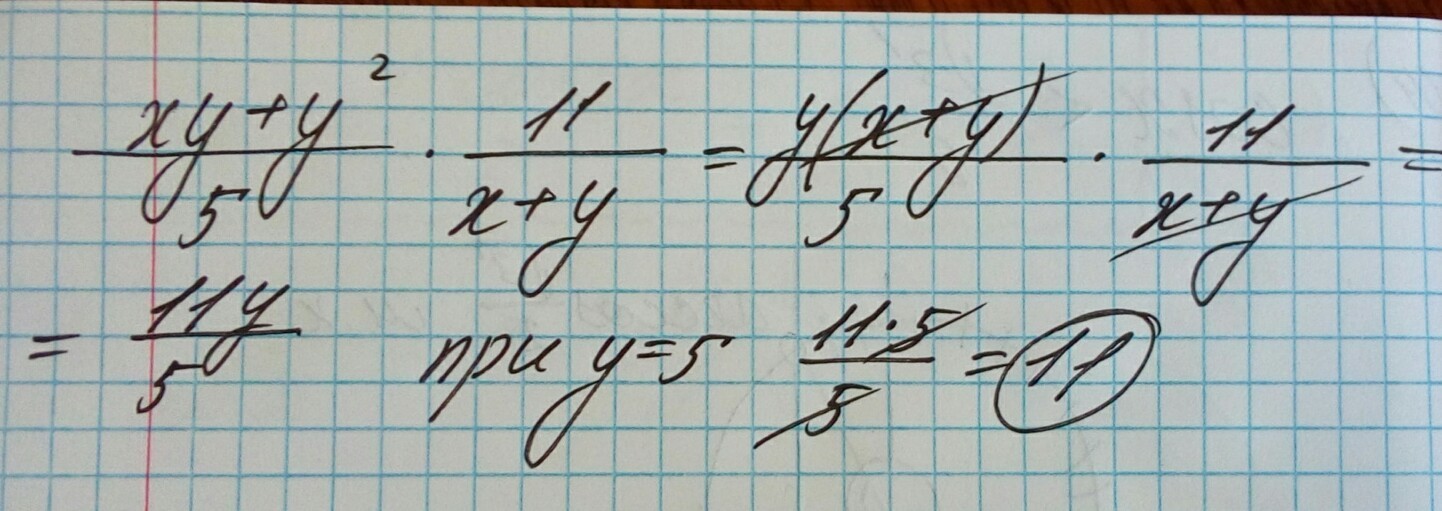 (xy+y²)/5 · 11/(x+y) = y(x+y)/5 · 11/(x+y) =
= 11y/5 при y=5 11·5/5 = 11